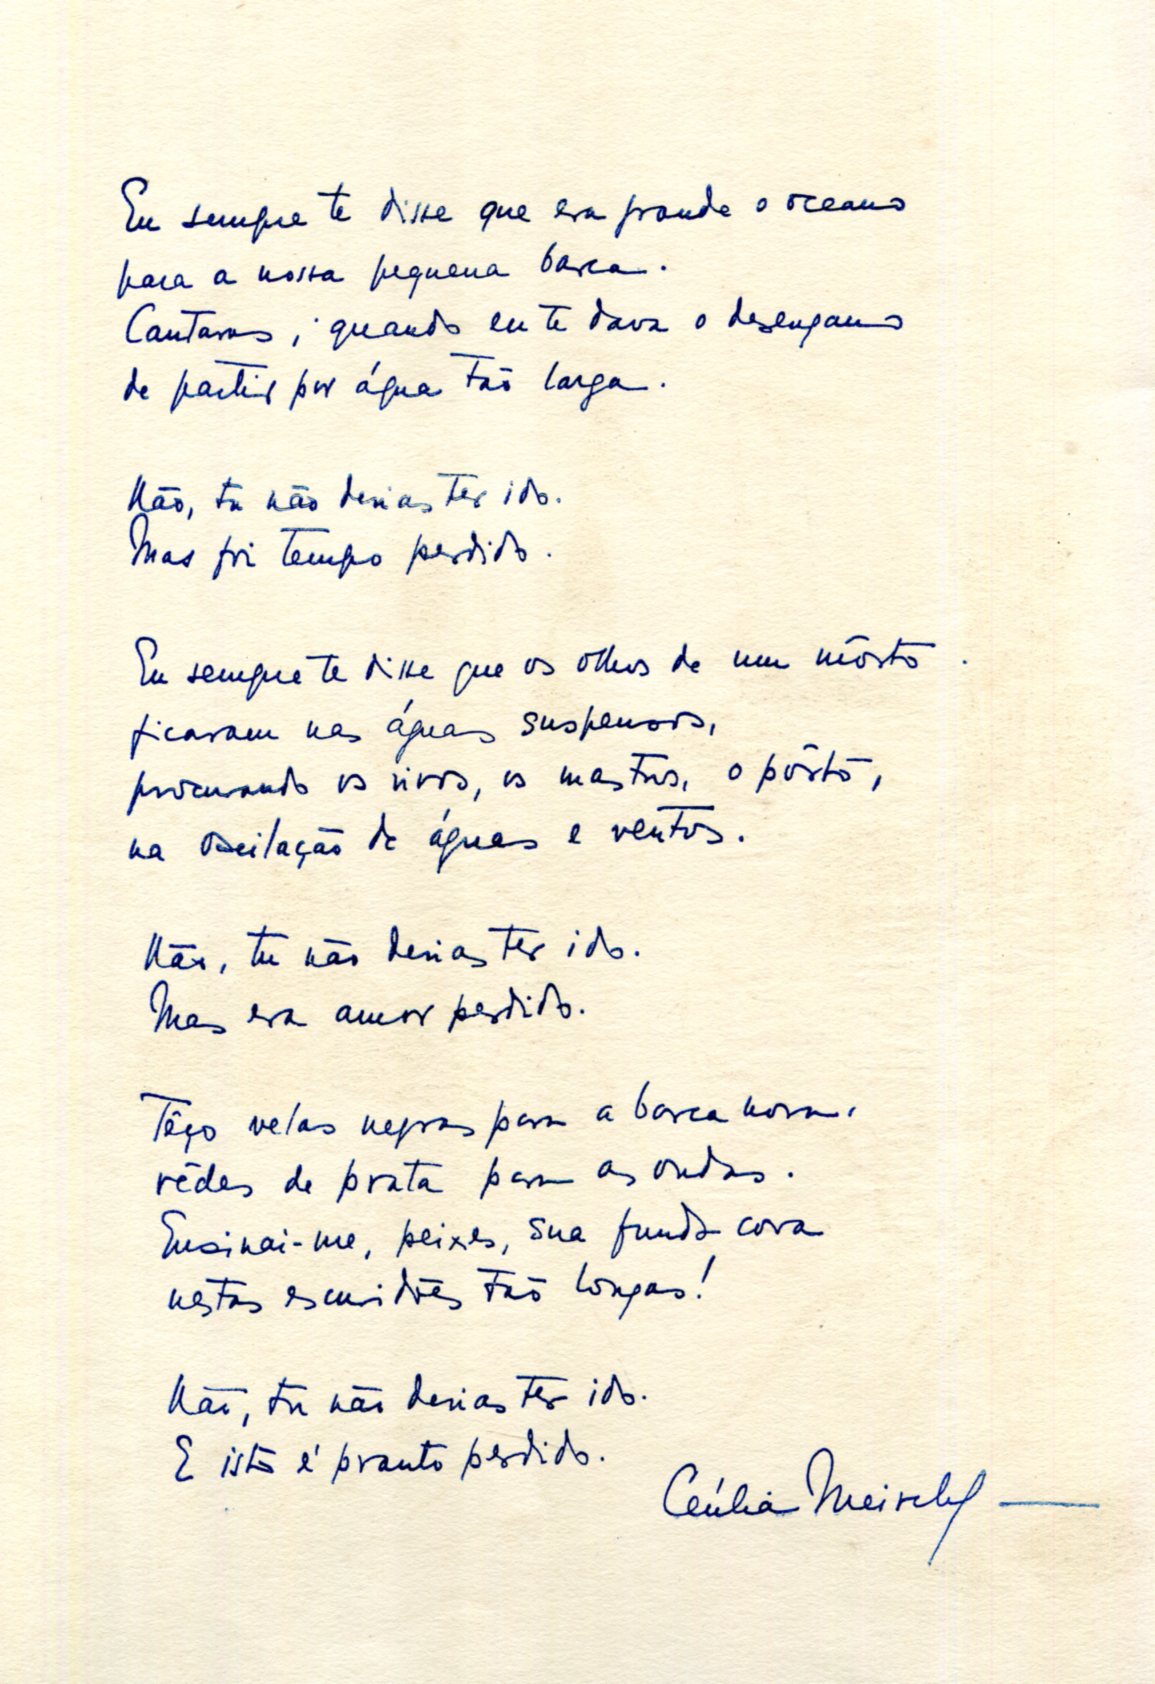 Eu sempre te disse que era grande o oceano
para a nossa pequena barca.
Cantavas, quando eu te dava o desengano
de partir por água tão larga.
Não, tu não devias ter ido.
Mas foi tempo perdido.
Eu sempre te disse que os olhos de um môrto
ficavam nas águas suspensos,
procurando os vivos, os mastros, o pôrto,
na oscilação de águas e ventos.
Não, tu não devias ter ido.
Mas era amor perdido.
Téço velas negras para a barca nova,
rêdes de prata para as ondas.
Ensinai-me, peixes, sua funda cova
nestas escuridões tão longas!
Não, tu não devias ter ido.
E isto é pranto perdido.
Cecília Meireles